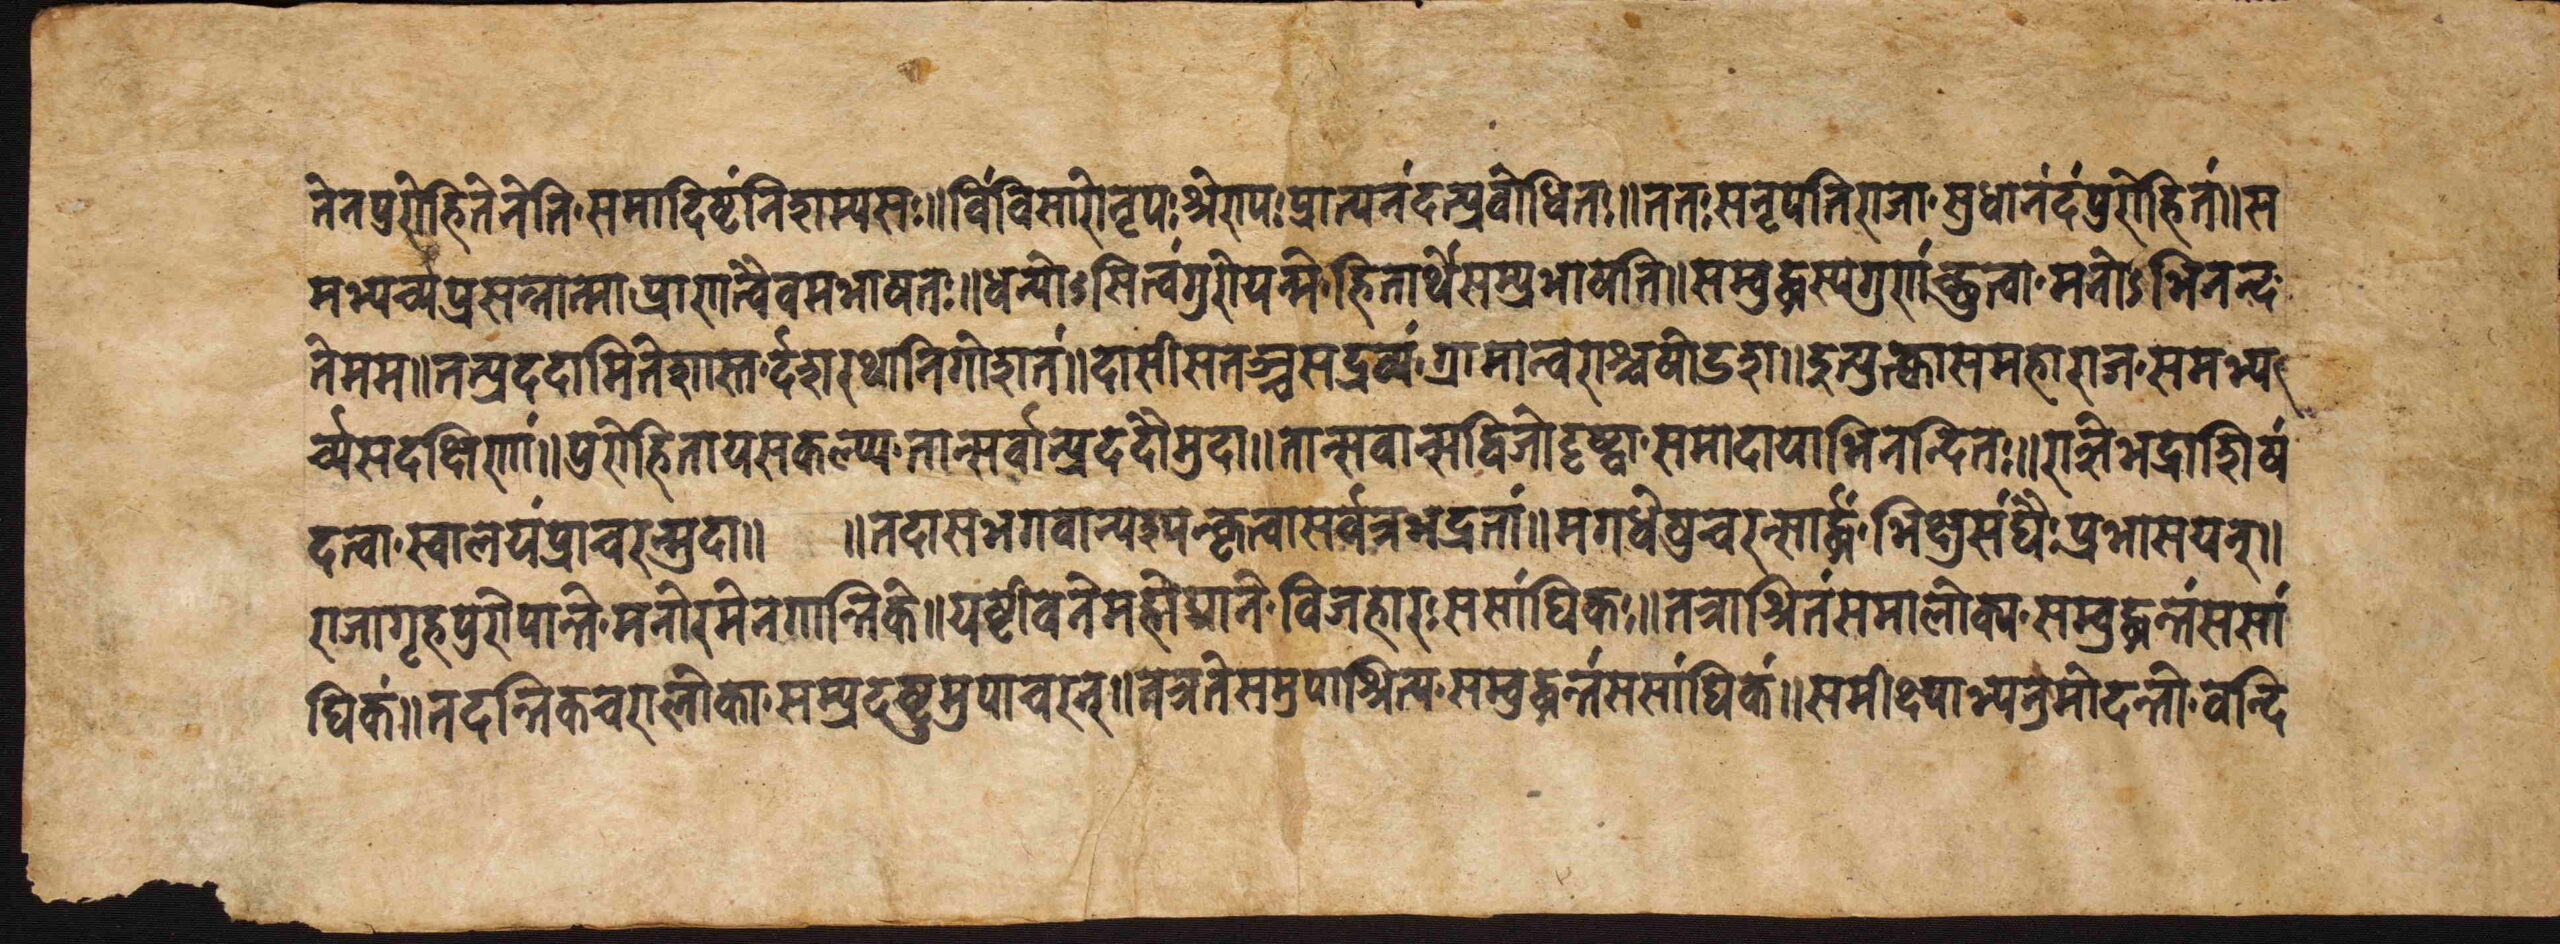 तेन पुरोहितेनेति समादिष्टं निशम्य सः॥ विंविसारो नृपः श्रेरापः प्रात्यनंदत्प्रवोधितः॥ ततः स नृपति राजा सुधानंदं पुरोहितं॥ स
मभ्यर्च्य प्रसन्नात्मा प्राराात्वैवमभाषतः॥ धन्योऽसि त्वं गुरो यन्मे हितार्थे संप्रभाषति॥ सम्बुद्धस्य गुणां च्छ्रुत्वा मनोऽभिनन्द
ते मम॥ तत्प्रददामि ते शास्त दशरथानि गोशतं॥ दासीसतञ्च सद्रव्यं ग्रामान्वराश्च षोडश॥ इत्युक्त्वा स महाराज समभ्य
र्च्य सदक्षिणां॥ पुरोहिताय सकल्प्य तान्सर्वान्प्रददौ मुदा॥ तान्सवान्स द्विजो दृष्ट्वा समादायाभिनन्दितः॥ राज्ञे भद्राशिषं
दत्वा स्वालयं प्राचरन्मुदा॥ ॥ तदा स भगवान्पश्यन्कृत्वा सर्वत्र भद्रतां॥ मगधेषु चरन्सार्द्धं भिक्षुसंघैः प्रभासयन्॥
राजागृहपुरोपान्ते मनोरमे नगान्तिके॥ यष्टीवने महोद्याने विजहारः ससांघिकः॥ तत्राश्रितं समालोक्य सम्बुद्धन्तं ससां
घिकं॥ तदन्तिकचरा लोका सम्प्रदष्टुमुपाचरन्॥ तत्र ते समुपाश्रित्य सम्बुद्धन्तं ससांघिकं॥ समीक्ष्याभ्यनुमोदन्तो वन्दि